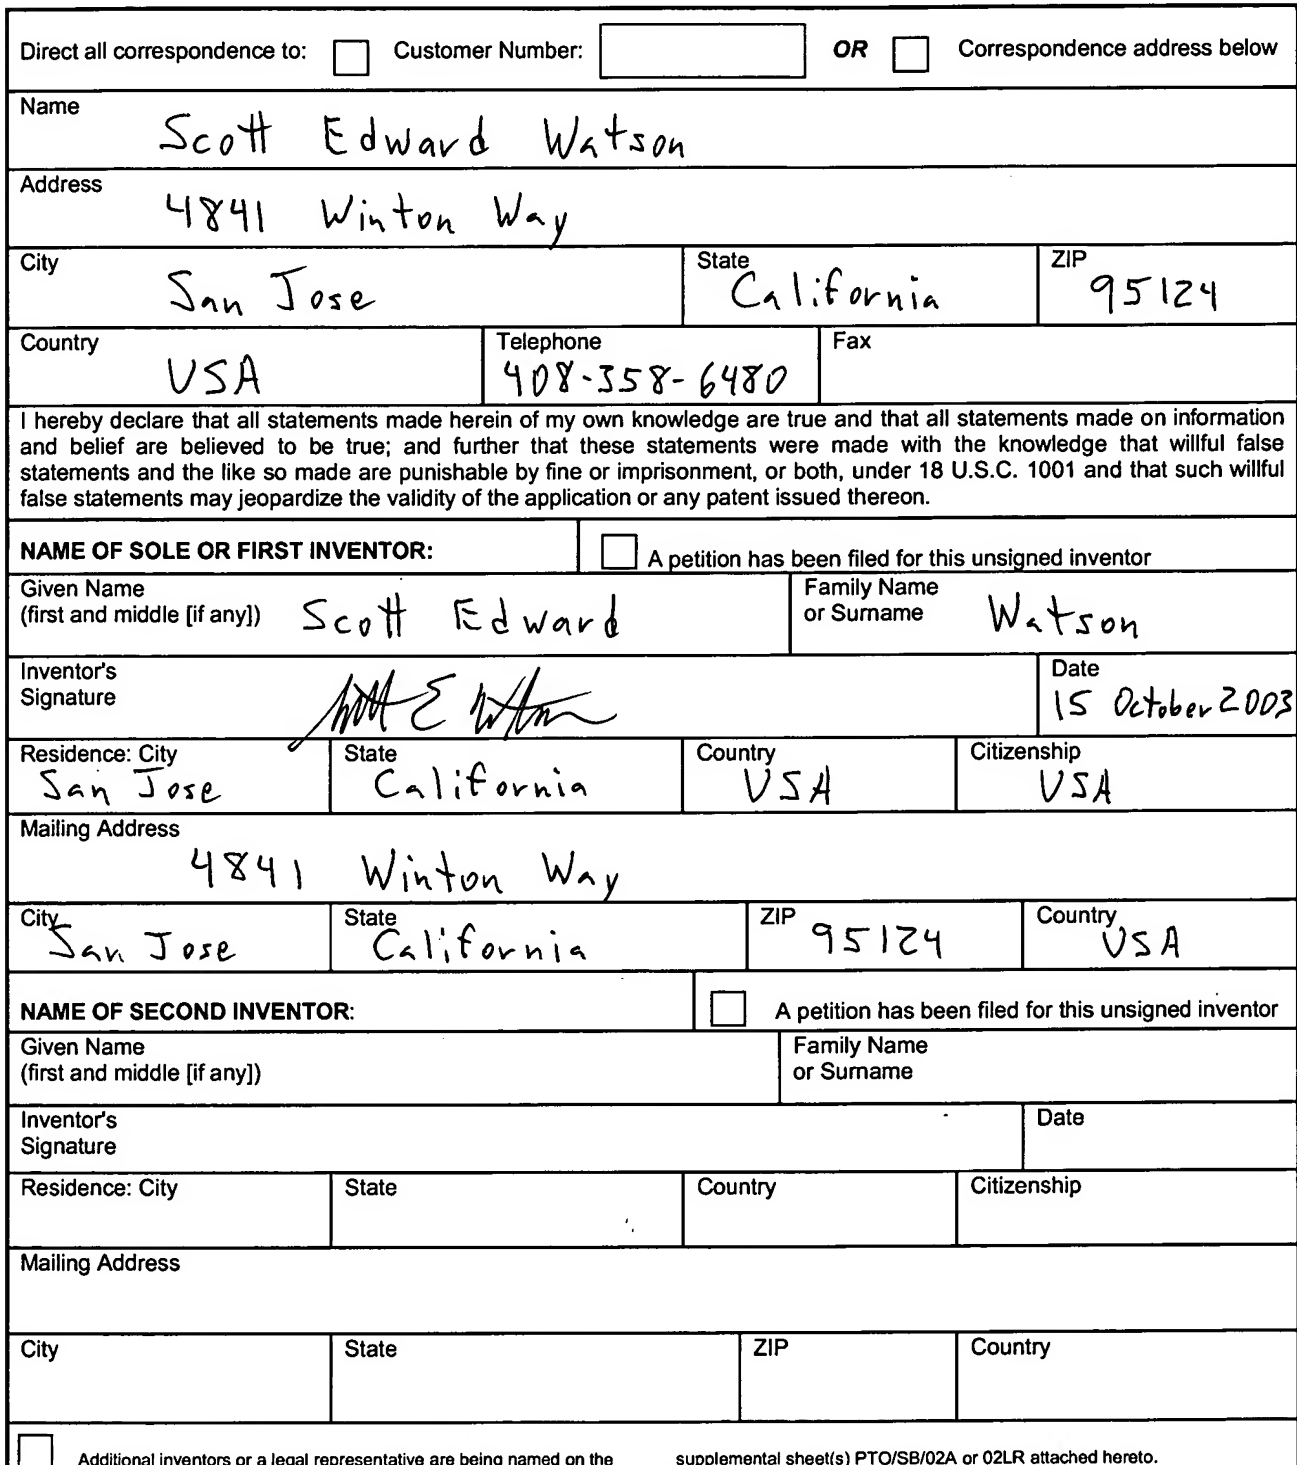 Direct all correspondence to: Customer Number: OR Correspondence address below
Name
Scott Edward Watson
Address
4841 Winton Way
City State ZIP
San Jose California 95124
Country Telephone Fax
USA 408-358-6480
I hereby declare that all statements made herein of my own knowledge are true and that all statements made on information
and belief are believed to be true; and further that these statements were made with the knowledge that willful false
statements and the like so made are punishable by fine or imprisonment, or both, under 18 U.S.C. 1001 and that such willful
false statements may jeopardize the validity of the application or any patent issued thereon.
NAME OF SOLE OR FIRST INVENTOR: A petition has been filed for this unsigned inventor
Given Name Family Name
(first and middle [if any]) Scott Edward or Surname Watson
Inventor's Date
Signature Scott E Watson 15 October 2003
Residence: City State Country Citizenship
San Jose California USA USA
Mailing Address
4841 Winton Way
City State ZIP 95124 Country
San Jose California USA
NAME OF SECOND INVENTOR: A petition has been filed for this unsigned inventor
Given Name Family Name
(first and middle [if any]) or Surname
Inventor's Date
Signature
Residence: City State Country Citizenship
Mailing Address
City State ZIP Country
Additional inventors or a legal representative are being named on the supplemental sheet(s) PTO/SB/02A or 02LR attached hereto.